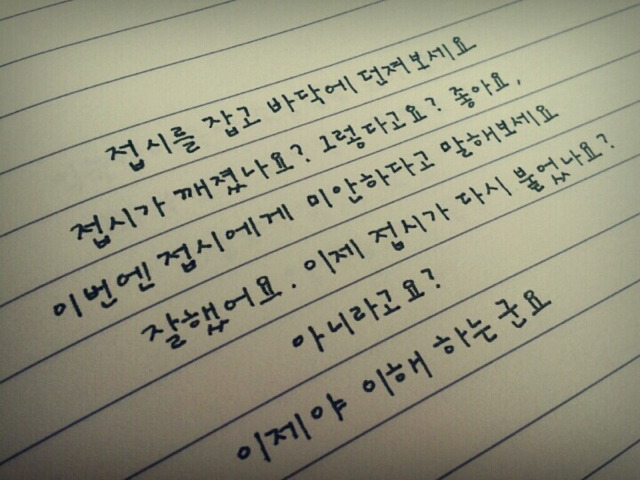 접시를 잡고 바닥에 던져보세요
접시가 깨졌나요? 그렇다고요? 좋아요,
이번엔 접시에게 미안하다고 말해보세요
잘했어요. 이제 접시가 다시 붙었나요?
아니라고요?
이제야 이해 하는군요